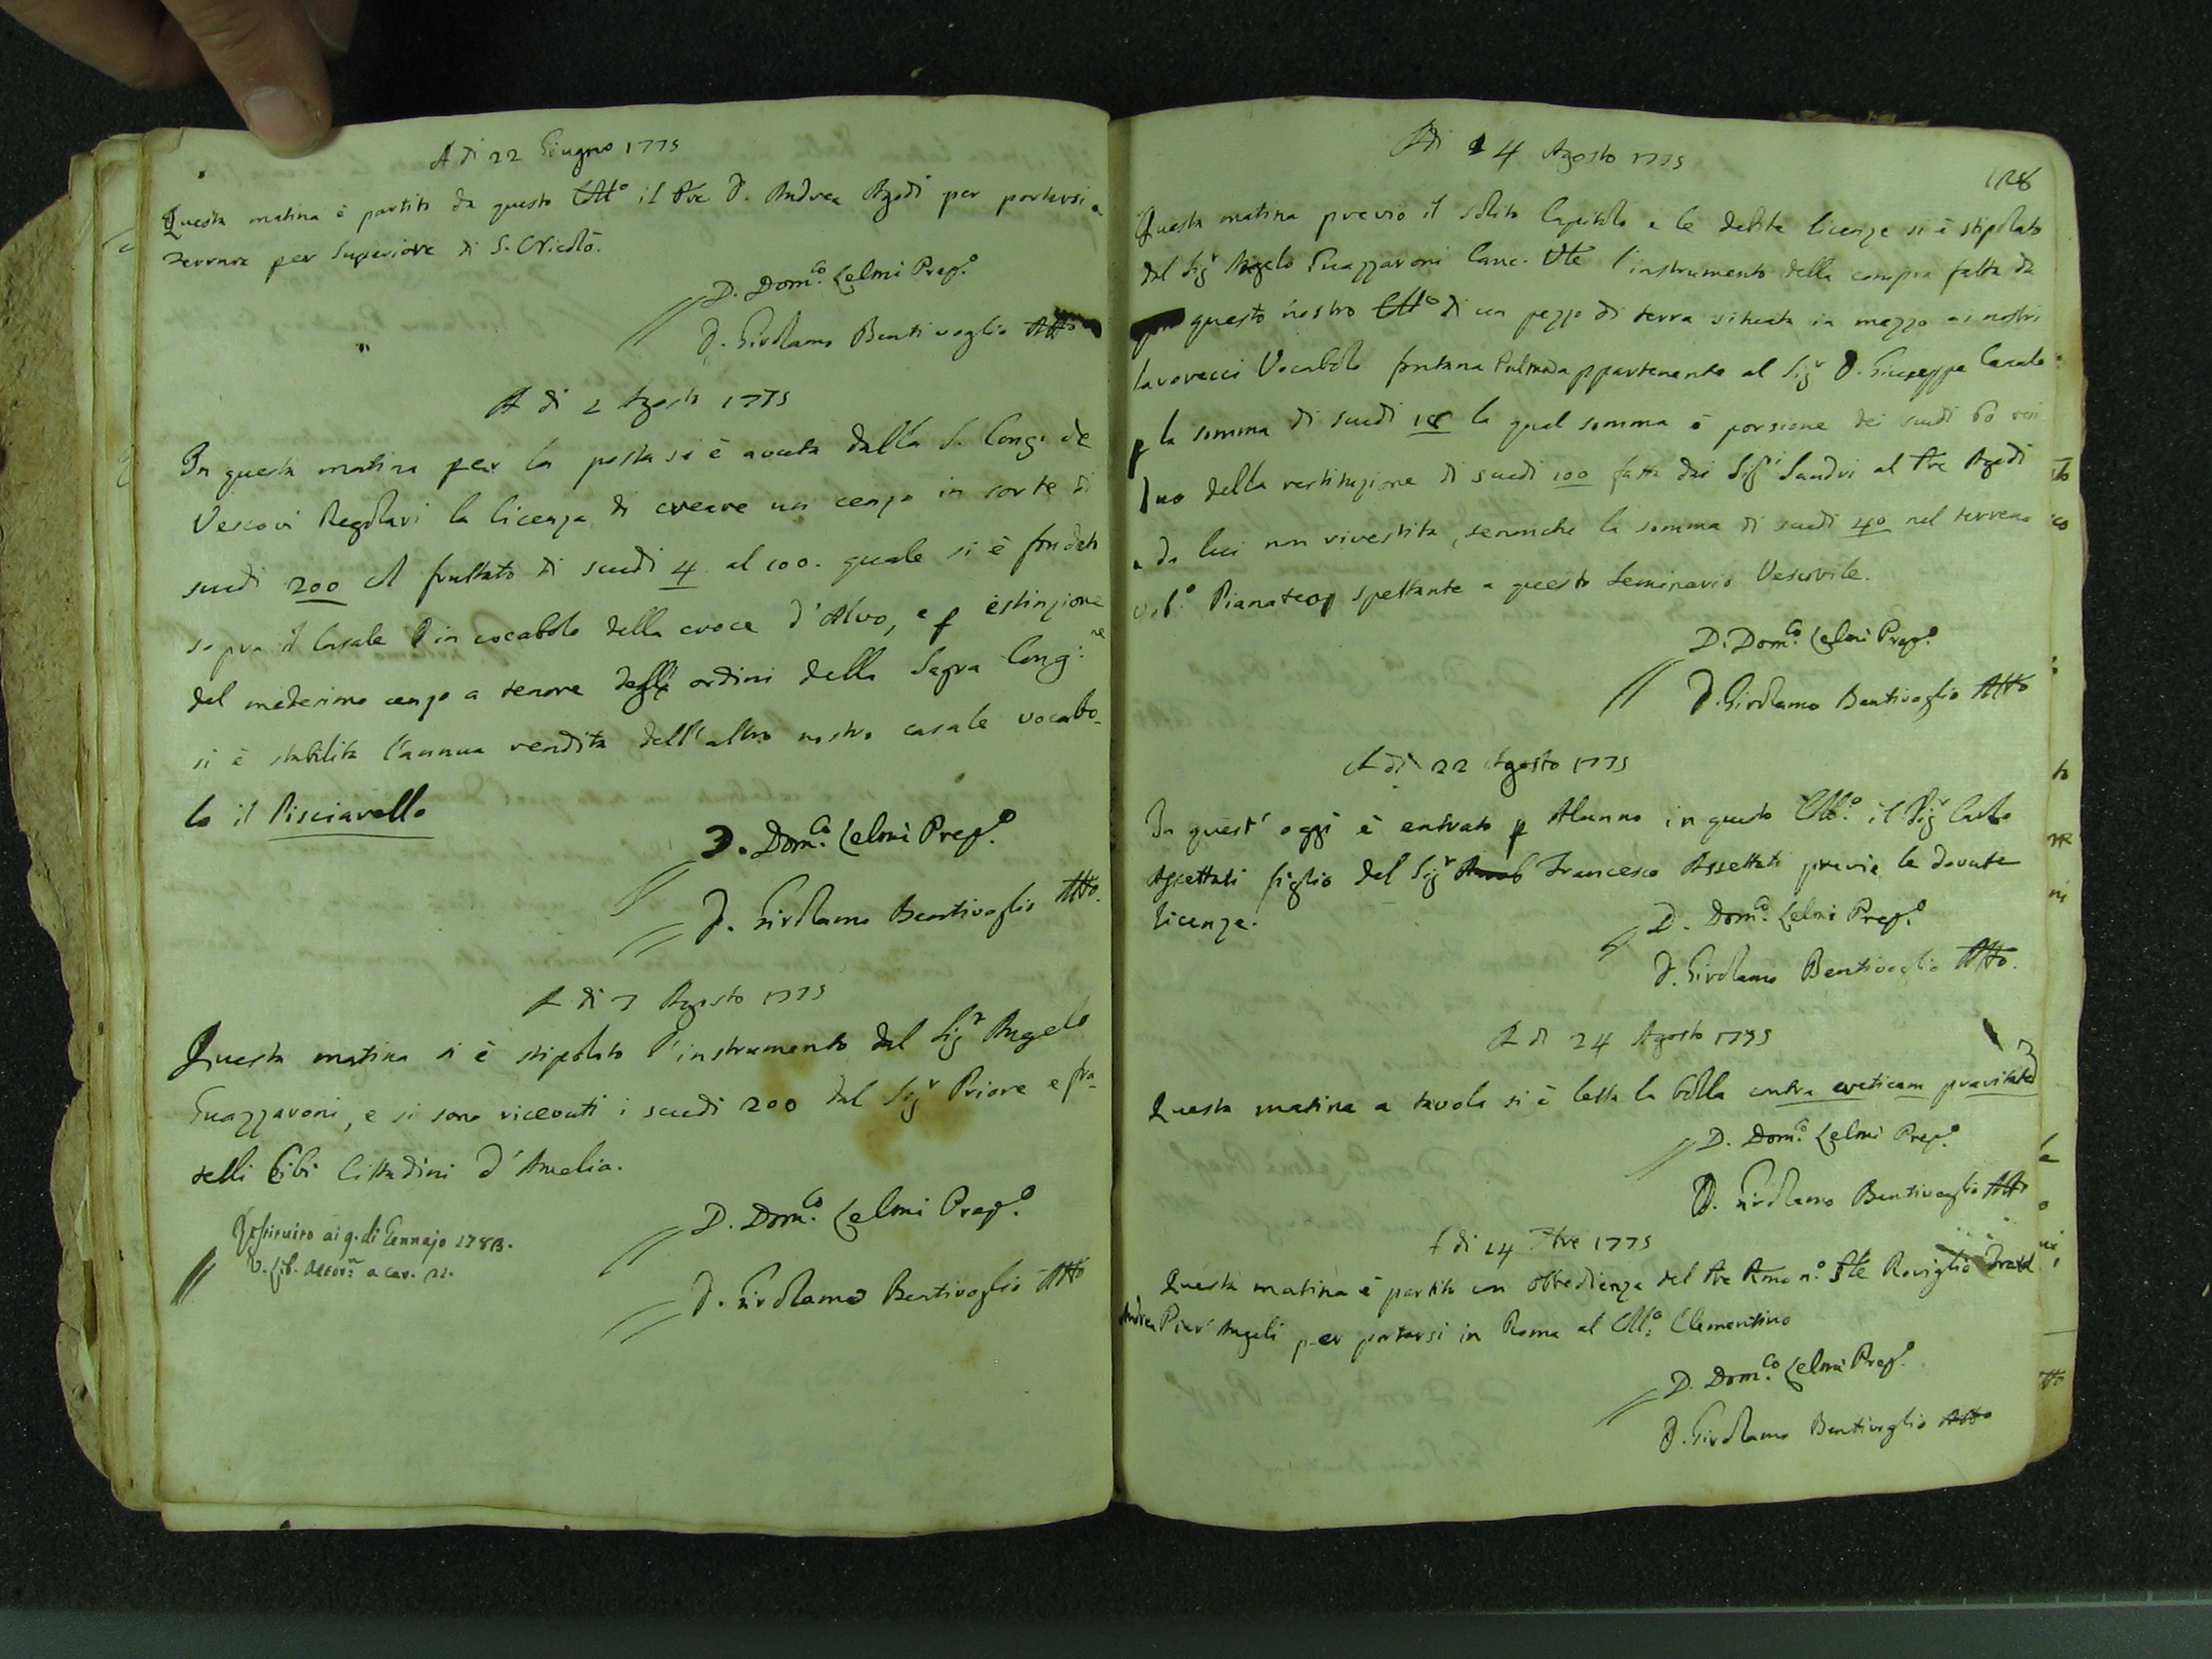 A dì 22 Giugno 1775
Questa matina è partito da questo Coll.o il Pre D. Andrea Agodi per portarsi a
Ferrara per Superiore di S. Nicolò.
D. Dom.co Lelmi Prep.o
D. Girolamo Bentivoglio Atto
A dì 2 Agosto 1775
In questa matina per la posta si è avuta dalla S. Cong. de
Vescovi Regolari la licenza di creare un cenzo in sorte di
scudi 200 al fruttato di scudi 4 al 100. quale si è fondato
sopra il Casale in vocabolo della croce d'Alvo, e p estinzione
del medesimo cenzo a tenore degli ordini della Sagra Cong.ne
si è stabilita l'annua rendita dell'altro nostro casale vocabo-
lo il Pisciarello
D. Dom.co Lelmi Prep.o
D. Girolamo Bentivoglio Atto.
A dì 7 Agosto 1775
Questa matina si è stipolato l'instrumento dal Sigr Angelo
Guazzaroni, e si sono ricevuti i scudi 200 dal Sigr Priore e fra-
telli Cibi Cittadini d'Amelia.
Restituito ai 9. di Gennajo 1783.
V. Lib. a car. 21.
D. Dom.co Lelmi Prep.o
D. Girolamo Bentivoglio Atto
128
Adì 14 Agosto 1775
Questa matina previo il solito Capitolo e le debite licenze si è stipolato
dal Sigr Angelo Guazzaroni Canc. l'instrumento della compra fatta da
questo nostro Coll.o di un pezzo di terra situata in mezzo ai nostri
lavorecci Vocabolo fontana appartenente al Sigr D. Giuseppe Carale
p la somma di scudi 18 la qual somma è porsione dei scudi 60 resi
duo della restituzione di scudi 100 fatta dai Sigri Sandri al Pre Agodi
e da lui non rivestita, senonche la somma di scudi 40 nel terreno
spettante a questo Seminario Vescovile.
D. Dom.co Lelmi Prep.o
D. Girolamo Bentivoglio Atto
A dì 22 Agosto 1775
In quest'oggi è entrato p Alunno in questo Coll.o il Sigr Carlo
Assettati figlio del Sigr Francesco Assettati previe le dovute
licenze.
D. Dom.co Lelmi Prep.o
D. Girolamo Bentivoglio Atto.
A dì 24 Agosto 1775
Questa matina a tavola si è letta la bolla contra ereticam pravitatem
D. Dom.co Lelmi Prep.o
D. Girolamo Bentivoglio Atto
A dì 14 7bre 1775
Questa matina è partito con obbedienza del Pre Rmo n.o Roviglio
Andrea Pier'Angeli per portarsi in Roma al Coll.o Clementino
D. Dom.co Lelmi Prep.o
D. Girolamo Bentivoglio Atto